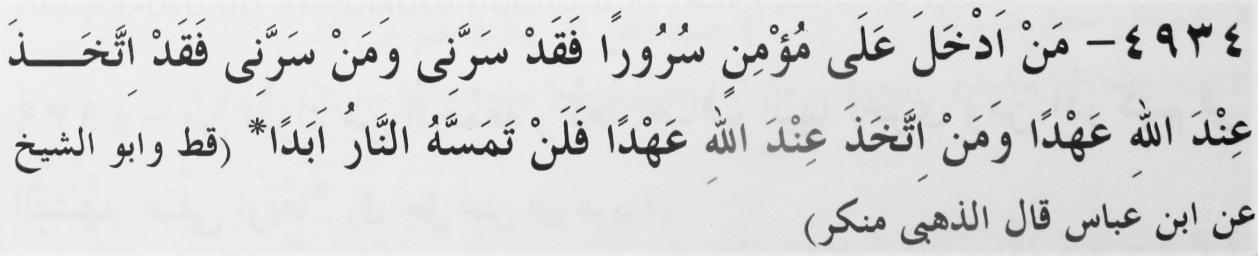 ٤٩٣٤- مَنْ اَدْخَلَ عَلَى مُؤْمِنٍ سُرُورًا فَقَدْ سَرَّنِى وَمَنْ سَرَّنِى فَقَدْ اتَّخَـــذَ
عِنْدَ اللهِ عَهْدًا وَمَنْ اِتَّخَذَ عِنْدَ اللهِ عَهْدًا فَلَنْ تَمَسَّهُ النَّارُ اَبَدًا* (قط وابو الشيخ
عن ابن عباس قال الذهبى منكر)